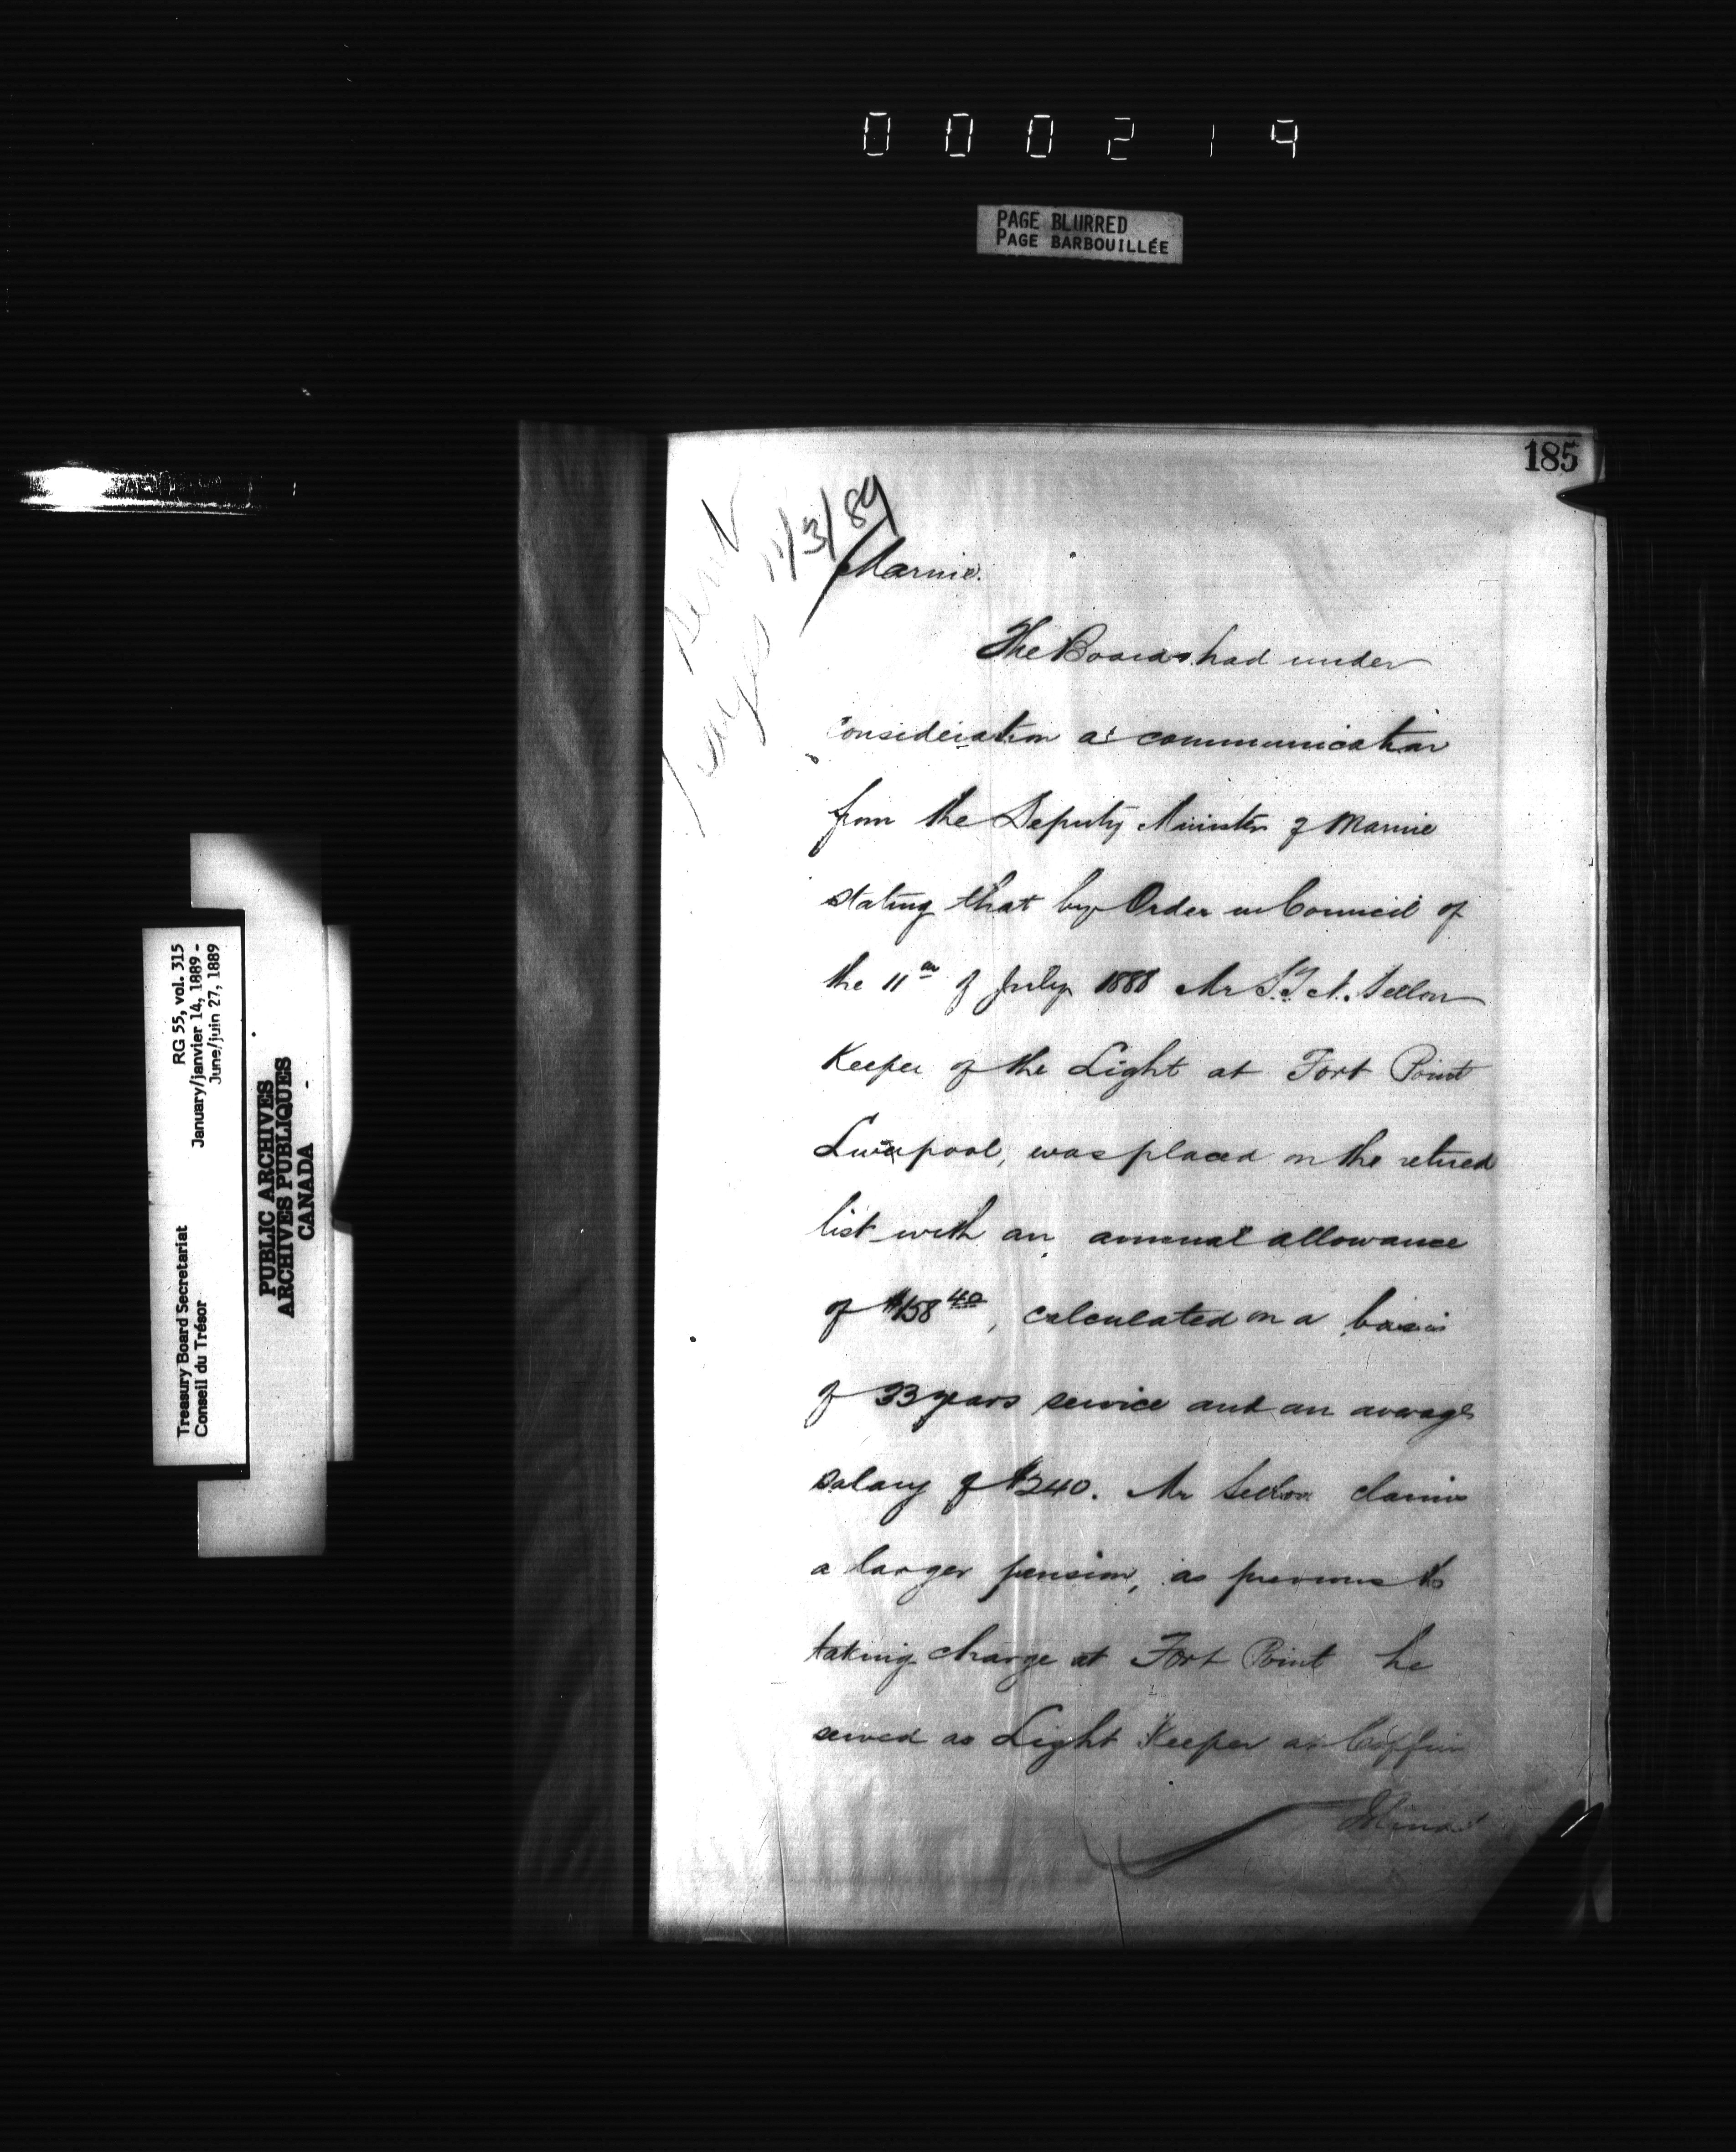 000219
PAGE BLURRED
PAGE BARBOUILLÉE
185
11/3/89
Marine.
The Board had under
consideration a communication
from the Deputy Minister of Marine
stating that by Order in Council of
the 11th of July 1888 Mr S. T. N. Sellon
Keeper of the Light at Fort Point
Liverpool, was placed on the retired
list with an annual allowance
of $158 40, calculated on a basis
of 33 years service and an average
salary of $240. Mr Sellon claims
a larger pension, as previous to
taking charge at Fort Point he
served as Light Keeper at Coffin
Island
Treasury Board Secretariat
Conseil du Trésor
RG 55, vol. 315
January/janvier 14, 1889 -
June/juin 27, 1889
PUBLIC ARCHIVES
ARCHIVES PUBLIQUES
CANADA